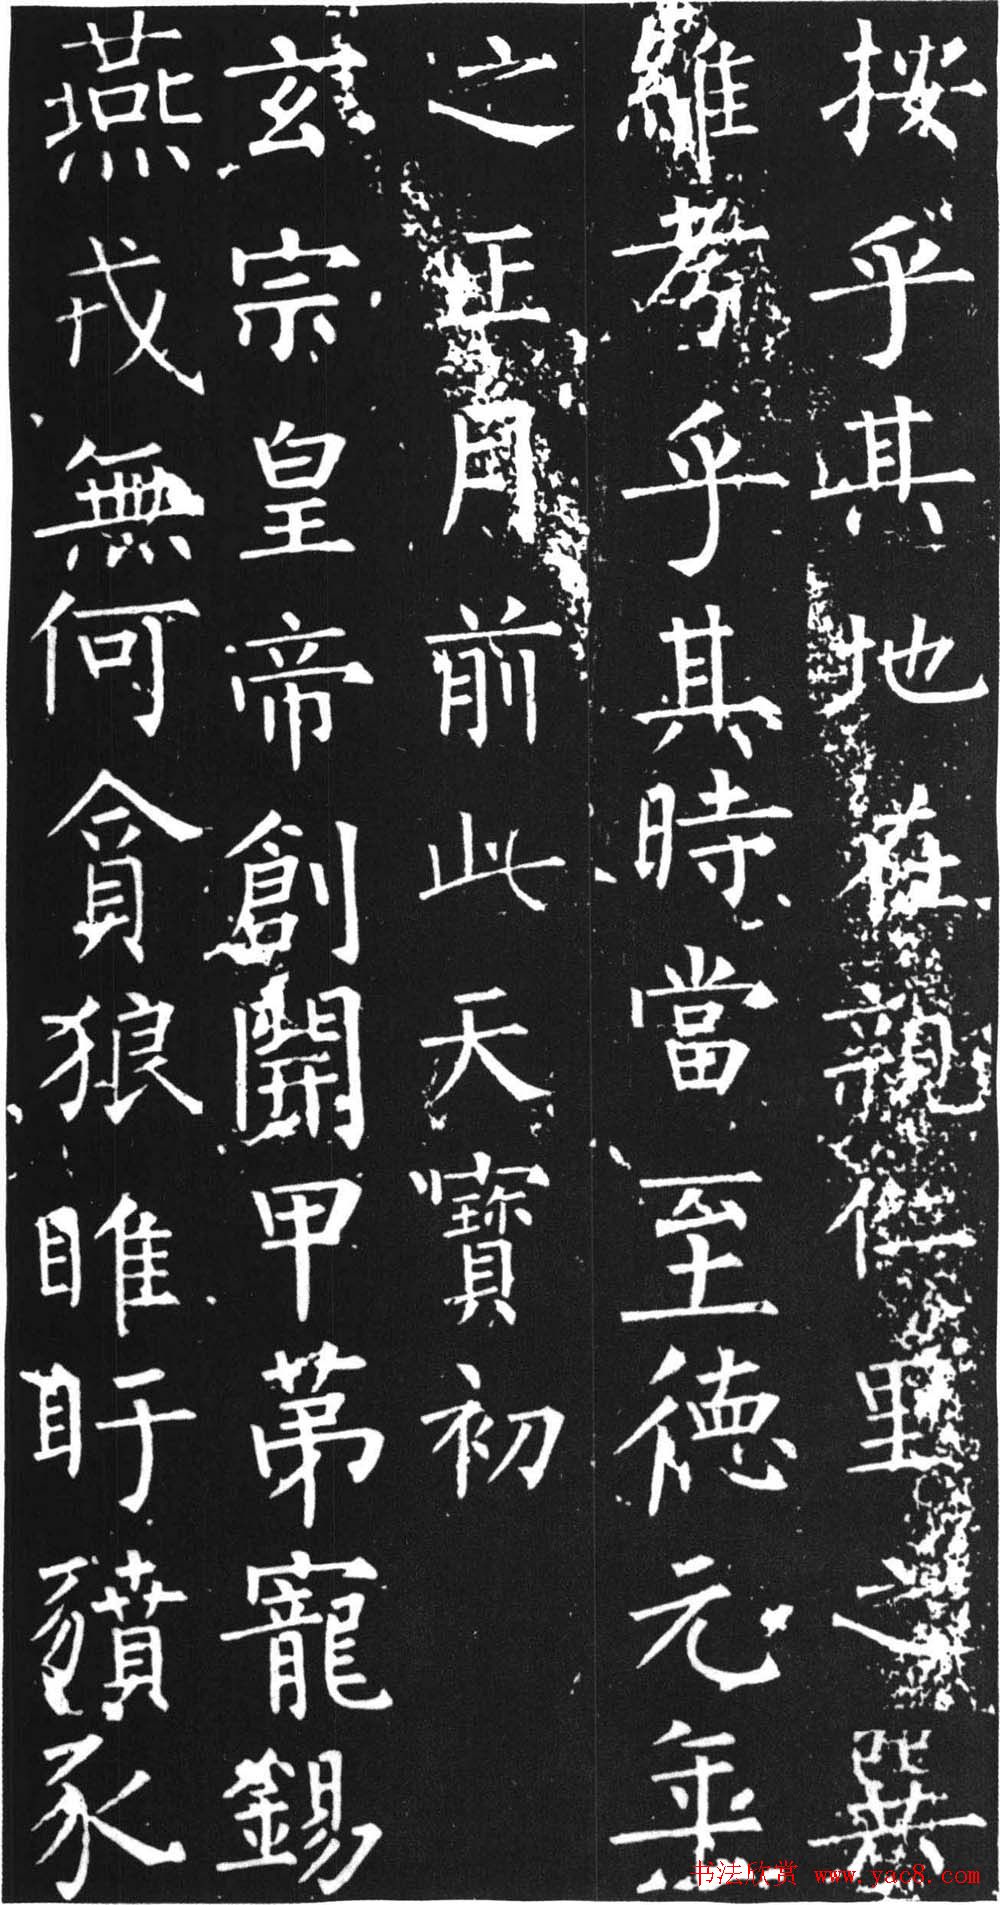 按乎其地在親仁里之巽
維考乎其時當至德元年
之正月前此天寶初
玄宗皇帝創開甲第寵錫
燕戎無何貪狼睢盱豶豕
书法欣赏 www.yac8.com